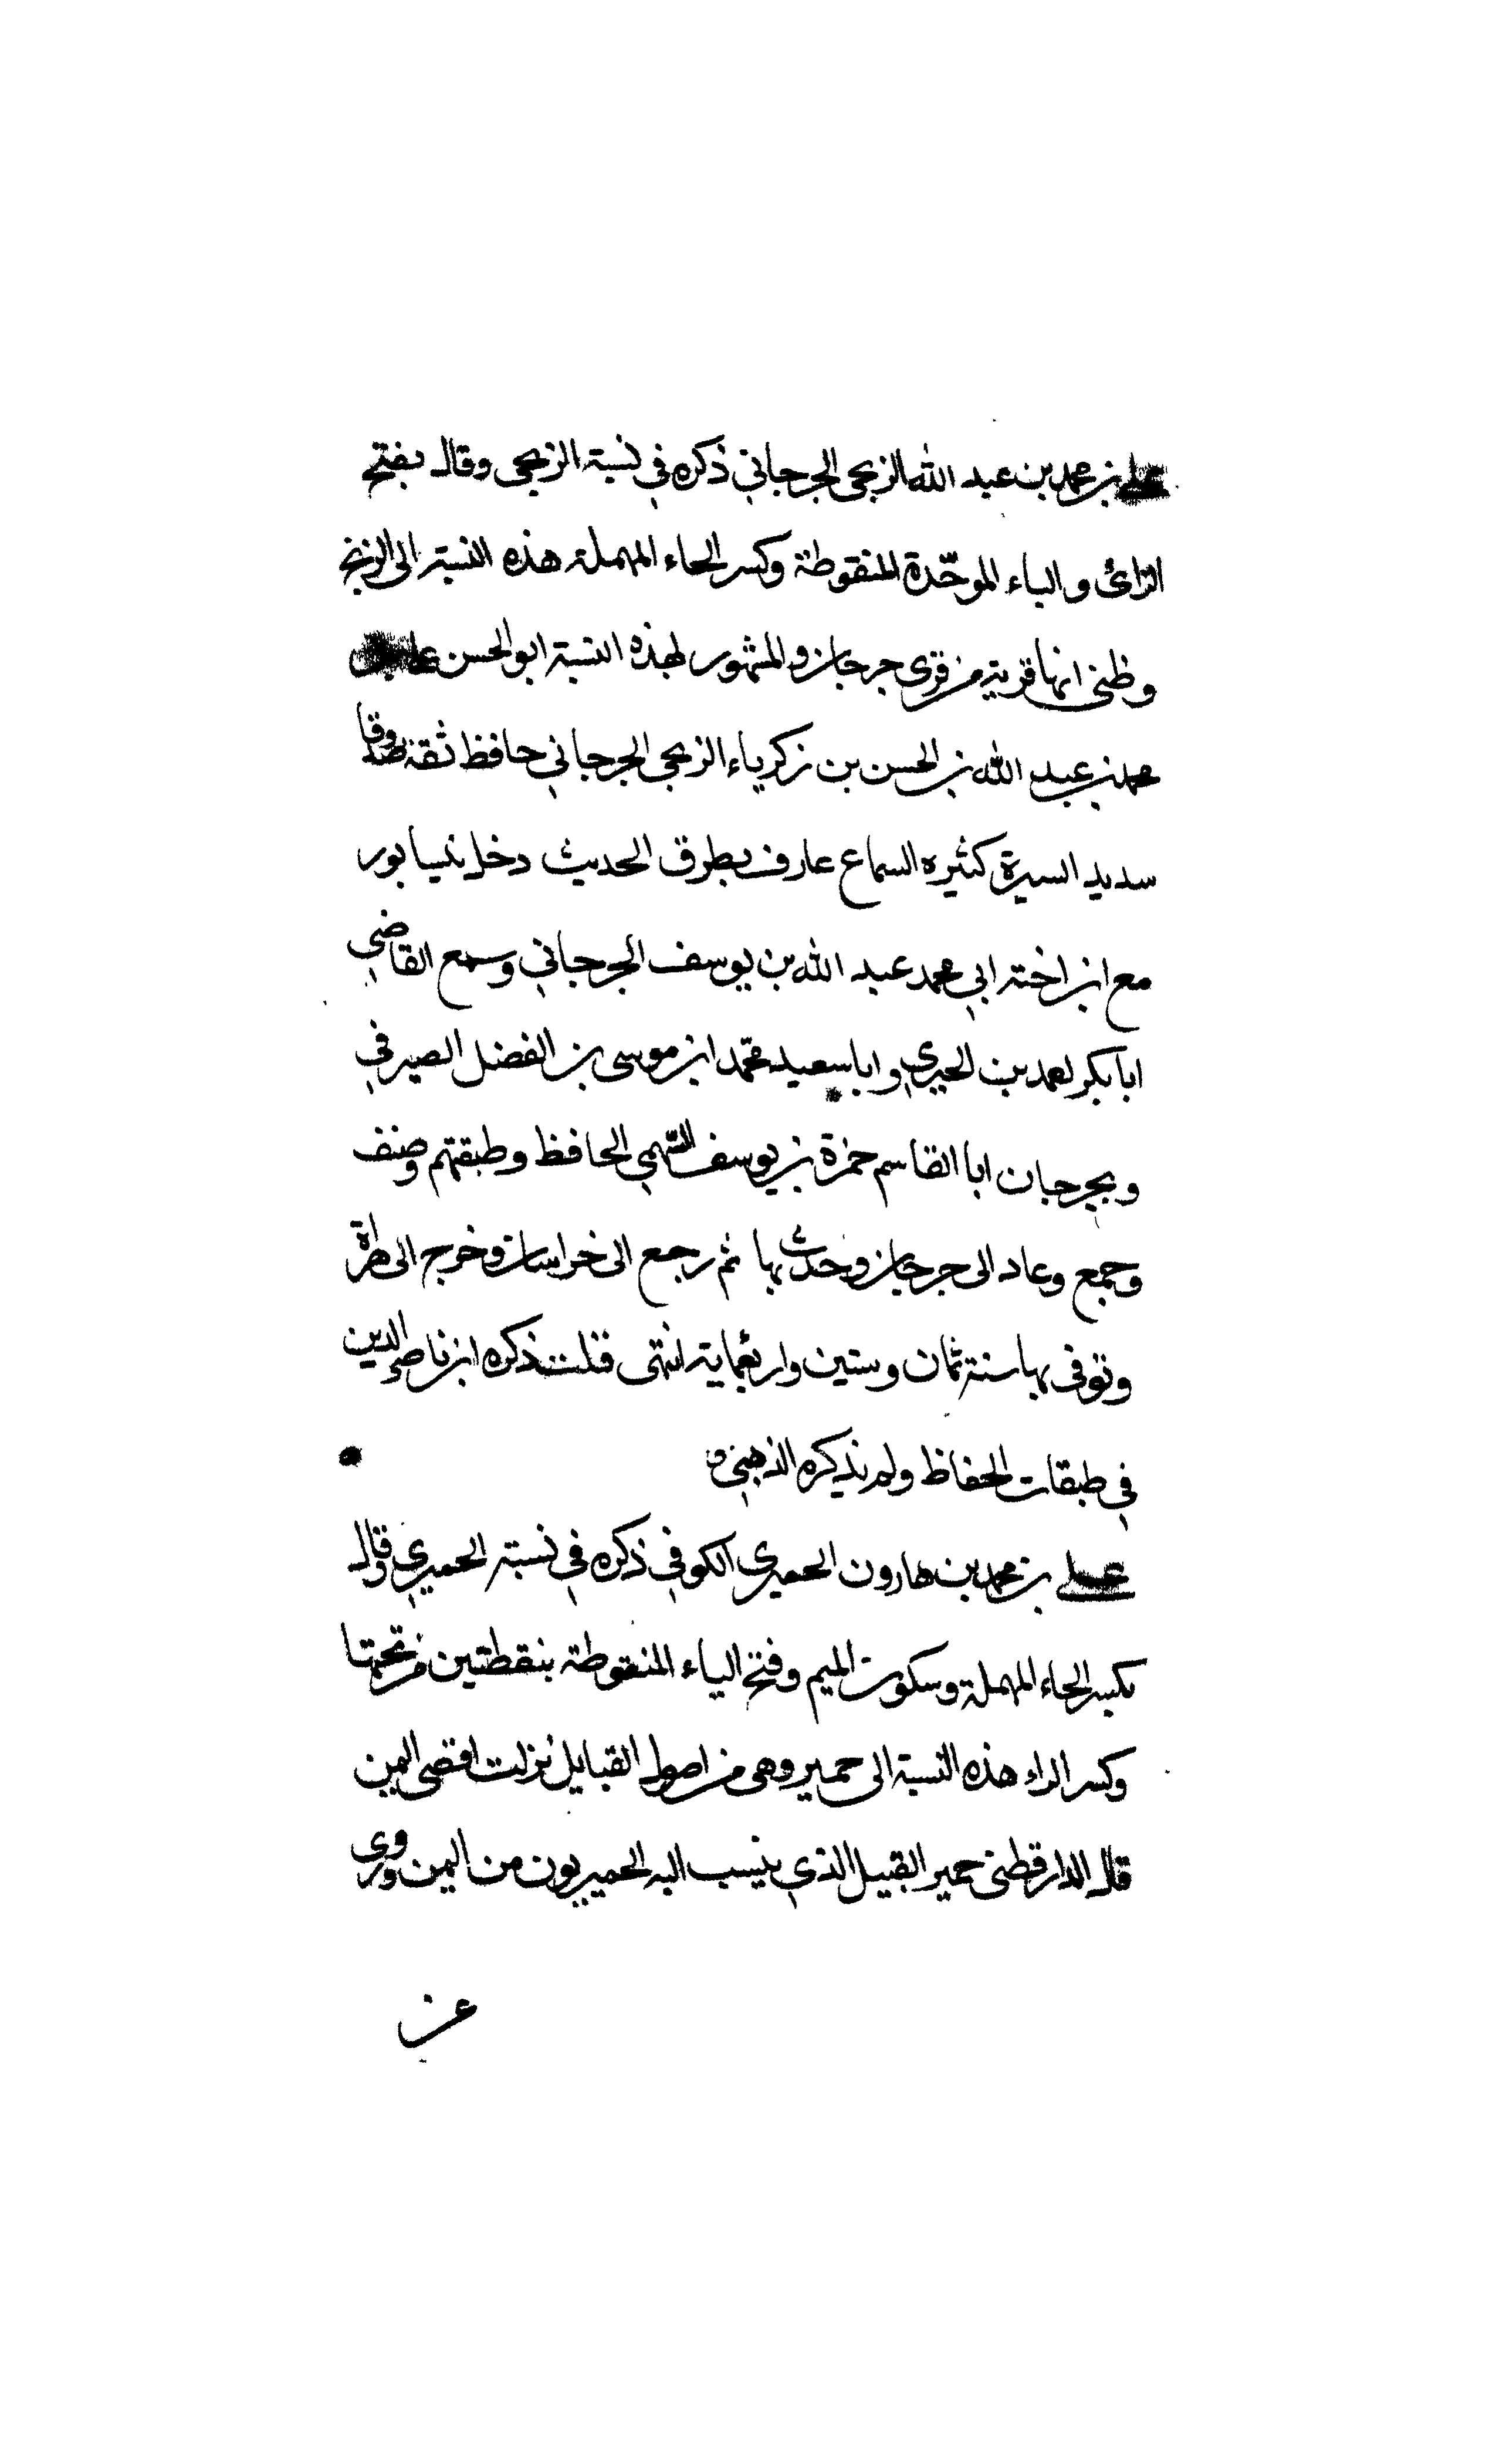 علي بن محمد بن عبد الله الزبحي الجرجاني ذكره في نسبة الزبحي وقال بفتح
الزائ والباء الموحّدة المنقوطة وكسر الحاء المهملة هذه النسبة الى الزبح
وظني انها قرية من قرى جرجان والمشهور لهذه النسبة ابو الحسن علي بن
محمد بن عبد الله بن الحسن بن زكرياء الزبحي الجرجاني حافظ ثقة صدوقا
سديد السيرة كثيره السماع عارف بطرق الحديث دخل نيسابور
مع ابن اخته ابي محمد عبد الله بن يوسف الجرجاني وسمع القاضي
ابا بكر احمد بن الحيري وابا سعيد محمّد ابن موسى بن الفضل الصيرفي
وبجرجان ابا القاسم حمزة بن يوسف السّهمي الحافظ وطبقتهم وصنف
وجمع وعاد الى جرجان وحدث بها ثم رجع الى خراسان وخرج الى هراة
وتوفى بها سنة ثمان وستين واربعماية انتهى قلت ذكره ابن ناصر الدين
في طبقات الحفاظ ولم يذكره الذهبي
علي بن محمد بن هارون الحميرى الكوفي ذكره في نسبة الحميري وقال
بكسر الحاء المهملة وسكون الميم وفتح الياء المنقوطة بنقطتين من تحتها
وكسر الراء هذه النسبة الى حمير وهى من اصول القبايل نزلت اقصى اليمن
قال الدارقطنى حمير القبيل الذي ينسب اليه الحميريون من اليمن وروى
عن